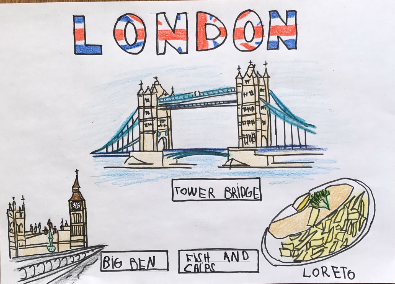 LONDON
TOWER BRIDGE
BIG BEN
FISH AND
CHIPS
LORETO